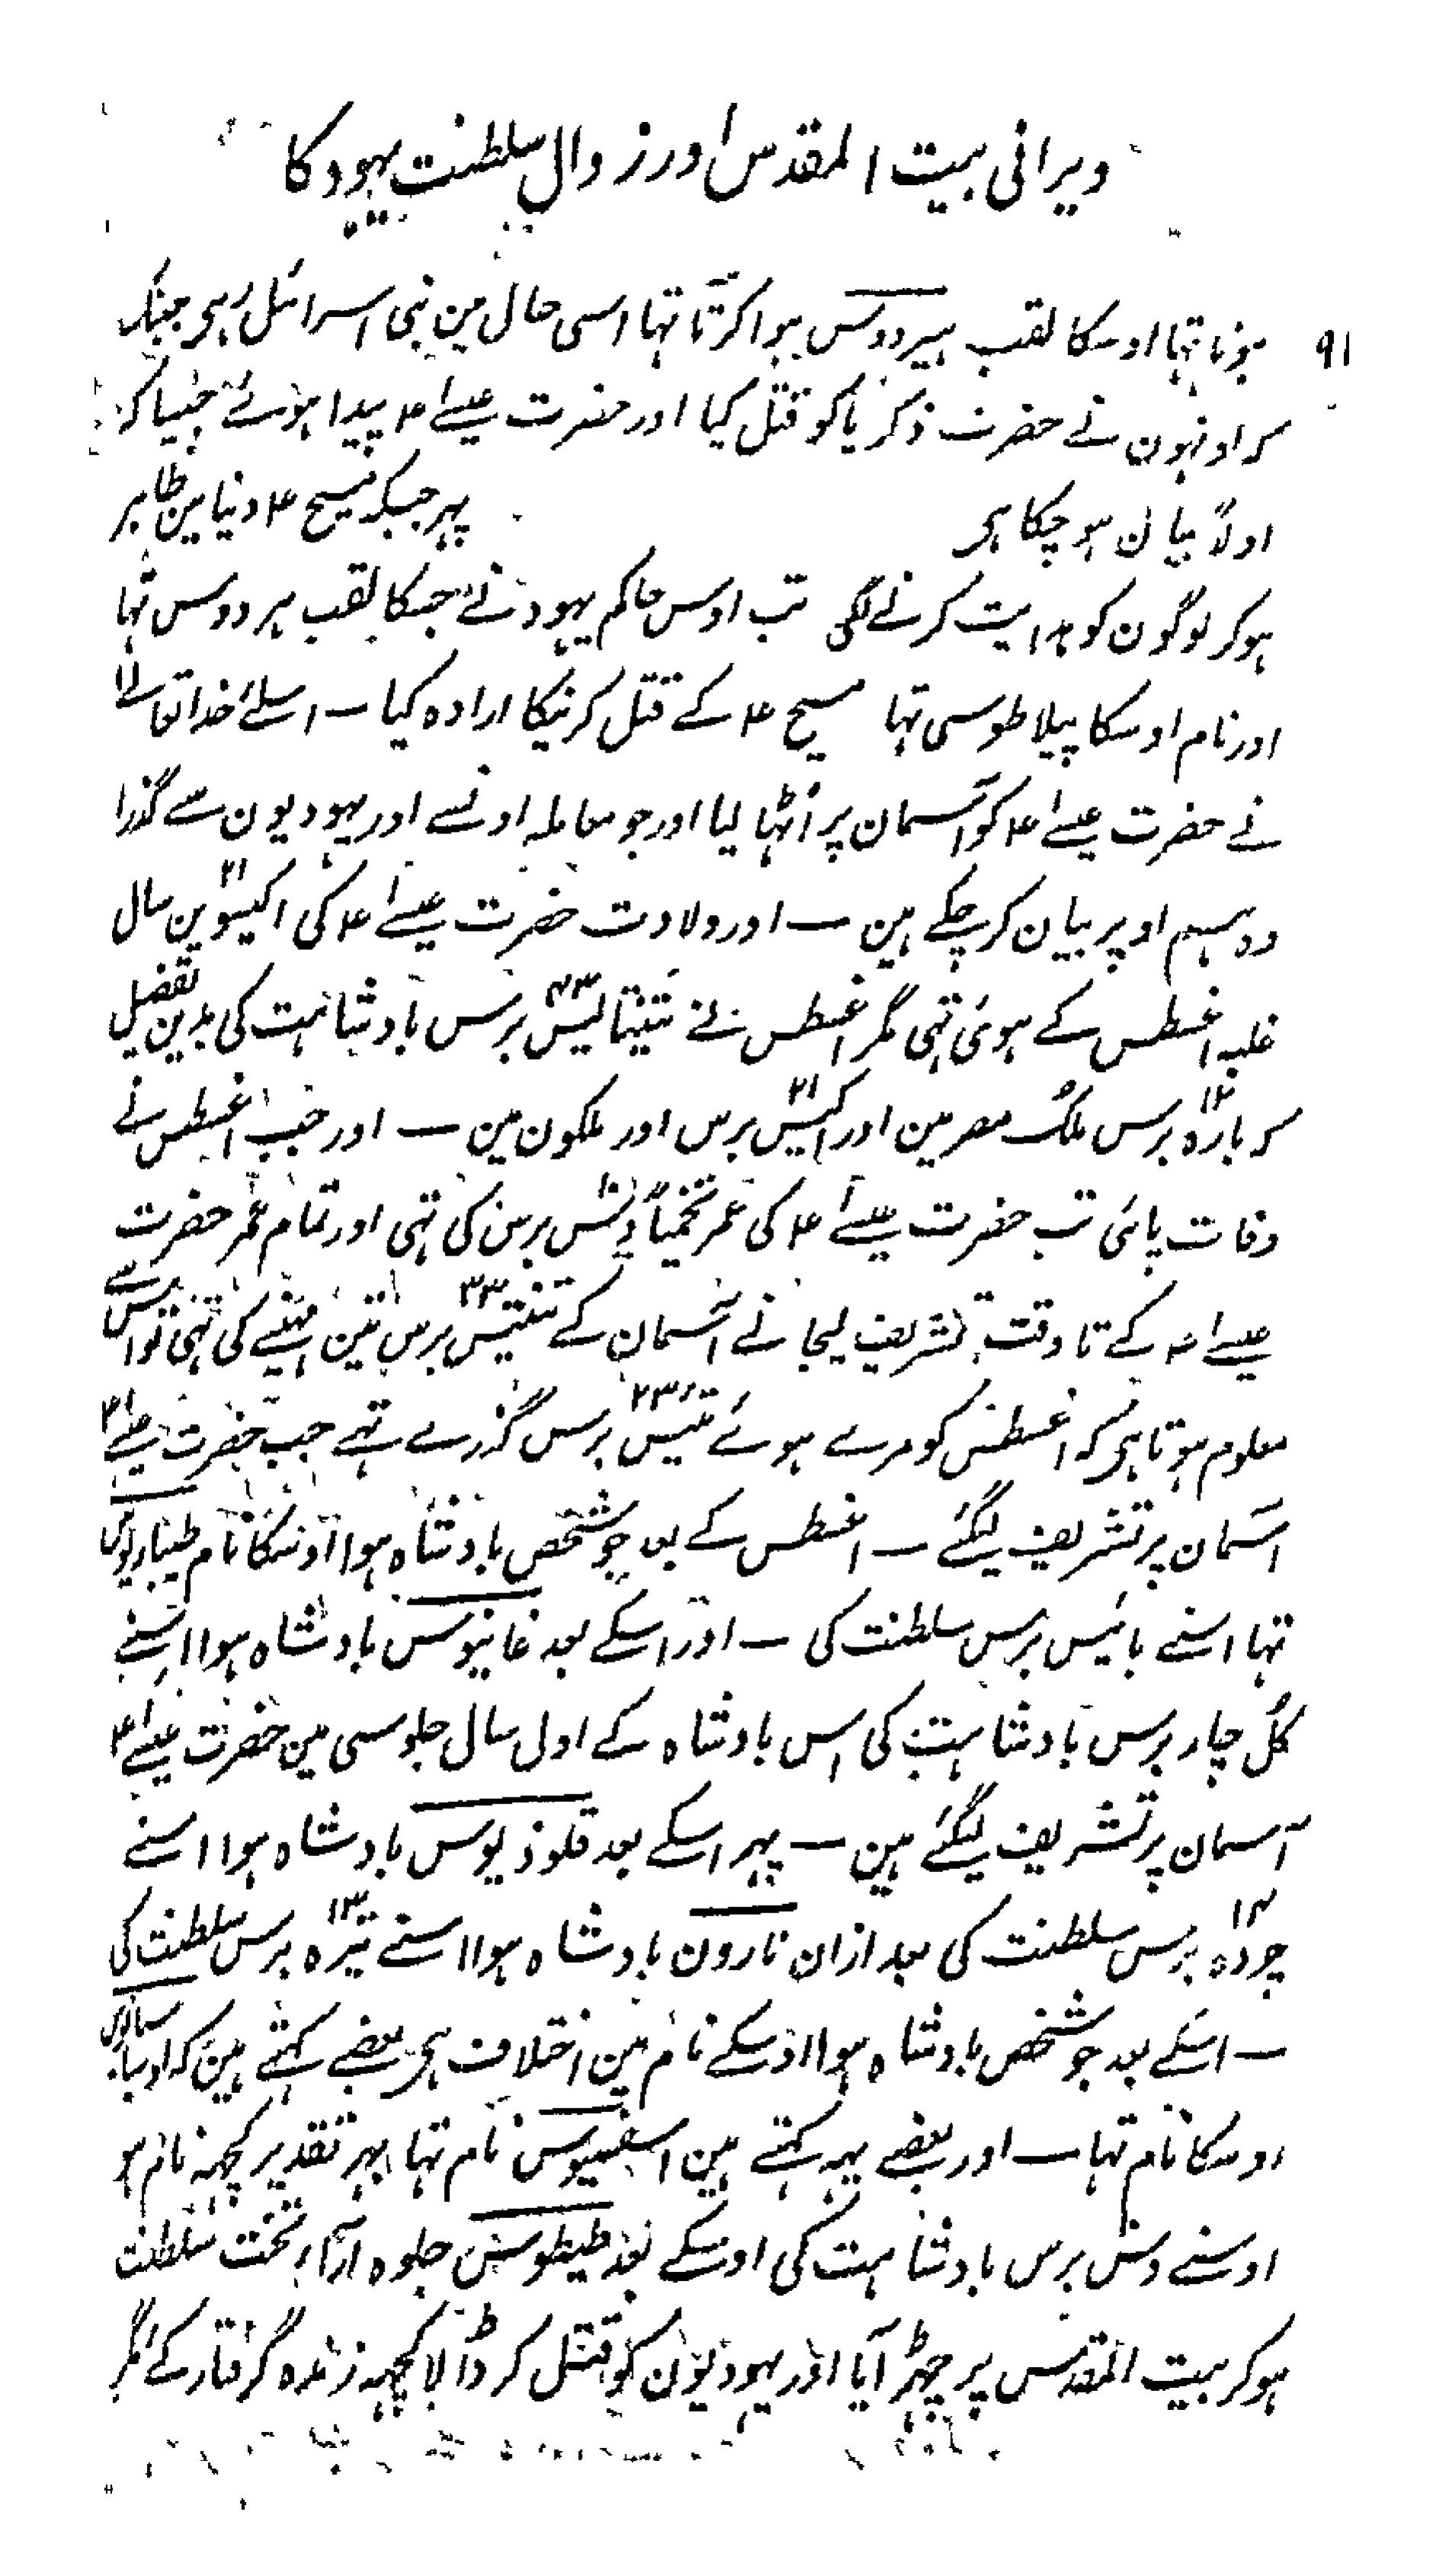 ویرانی بیت المقدس اور زوال سلطنت یہود کا
۹۱
ہوتا تہا اوسکا لقب ہیردوس ہوا کرتا تہا اسی حال مین بنی اسرائل رہی جبتک
کہ اونہون نے حضرت ذکریا کو قتل کیا اور حضرت عیسےٰ ۴ پیدا ہوئے جیسا کہ
اولاً بیان ہو چکا ہی پہر جبکہ مسیح ۴ دنیا مین ظاہر
ہوکر لوگون کو ہدایت کرنے لگی تب اوس حاکم یہود نے جسکا لقب ہردوس تہا
اور نام اوسکا پیلاطوسی تہا مسیح ۴ کے قتل کرنیکا ارادہ کیا ــ اسلئے خدا تعالےٰ
نے حضرت عیسےٰ ۴ کو آسمان پر اُٹہا لیا اور جو معاملہ اونسے اور یہودیون سے گذرا
وہ ہم اوپر بیان کر چکے ہین ــ اور ولادت حضرت عیسےٰ ۴ کی اکیسوین ۲۱ سال
غلبہ اغسطس کے ہوئی تہی مگر اغسطس نے تینتالیس ۴۳ برس بادشاہت کی بدین تفصیل
کہ بارہ ۱۲ برس ملک مصر مین اور اکیس ۲۱ برس اور ملکون مین ــ اور جب اغسطس نے
وفات پائی تب حضرت عیسےٰ ۴ کی عمر تخمیناً دس ۱۰ برس کی تہی اور تمام عمر حضرت
عیسےٰ ۴ کے تا وقت تشریف لیجانے آسمان کے تینتیس ۳۳ برس تین مہینے کی تہی تو اس سے
معلوم ہوتا ہی کہ اغسطس کو مرے ہوئے تئیس ۲۳ برس گذرے تہے جب حضرت عیسےٰ ۴
آسمان پر تشریف لیگئے ــ اغسطس کے بعد جو شخص بادشاہ ہوا اوسکا نام طیباریوس
تہا اسنے بائیس برس سلطنت کی ــ اور اسکے بعد غانیوس بادشاہ ہوا اسنے
کل چار برس بادشاہت کی اس بادشاہ کے اول سال جلوسی مین حضرت عیسےٰ ۴
آسمان پر تشریف لیگئے ہین ــ پہر اسکے بعد قلوذیوس بادشاہ ہوا اسنے
چودہ ۱۴ برس سلطنت کی بعد ازان نارون بادشاہ ہوا اسنے تیرہ ۱۳ برس سلطنت کی
ــ اسکے بعد جو شخص بادشاہ ہوا اوسکے نام مین اختلاف ہی بعضے کہتے ہین کہ
اوسکا نام تہا ــ اور بعضے یہہ کہتے ہین اسفیوس نام تہا بہر تقدیر کچہہ نام ہو
اوسنے دس برس بادشاہت کی اوسکے بعد طیطوس جلوہ آرا بر تخت سلطنت
ہوکر بیت المقدس پر چہڑ آیا اور یہودیون کو قتل کر ڈالا کچہہ زندہ گرفتار کے مگر